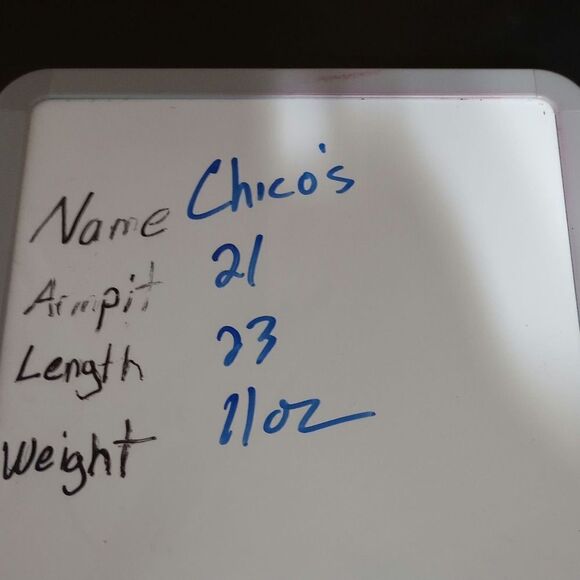 Name Chico's
Armpit 21
Length 23
Weight 11oz